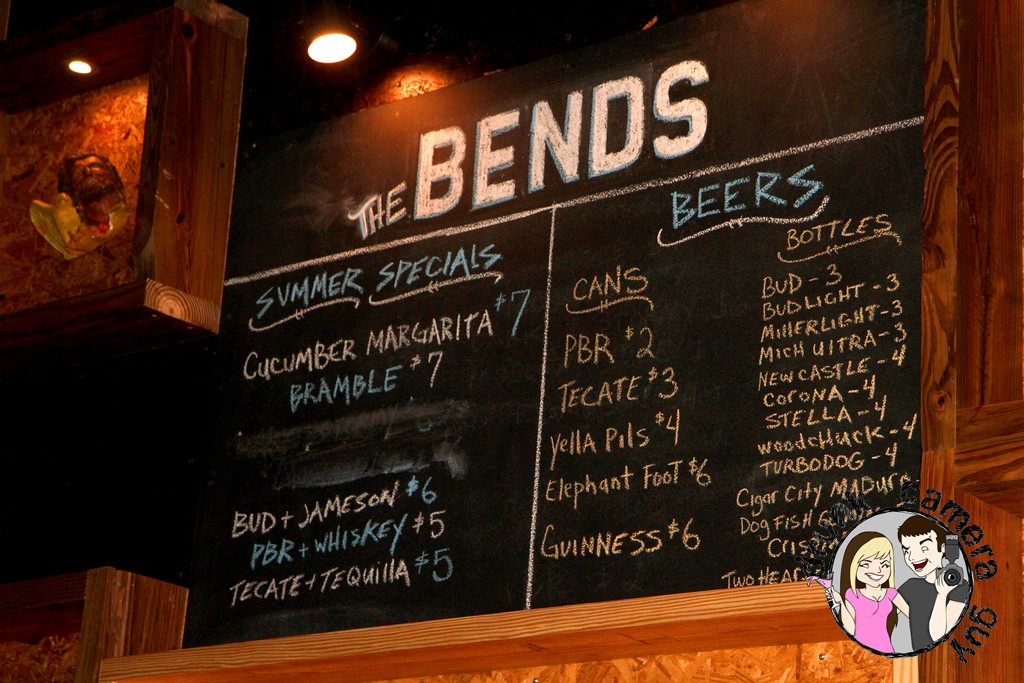 THE BENDS
SUMMER SPECIALS
CUCUMBER MARGARITA $7
BRAMBLE $7
BUD + JAMESON $6
PBR + WHISKEY $5
TECATE + TEQUILLA $5
BEERS
CANS
PBR $2
TECATE $3
Yella Pils $4
Elephant Foot $6
GUINNESS $6
BOTTLES
BUD - 3
BUD LIGHT - 3
MILLERLIGHT - 3
MICH ULTRA - 3
NEWCASTLE - 4
CORONA - 4
STELLA - 4
woodchuck - 4
TURBODOG - 4
Cigar City MADURO
DOG FISH
CRISPIN
TWO HEAR
drunk camera guy